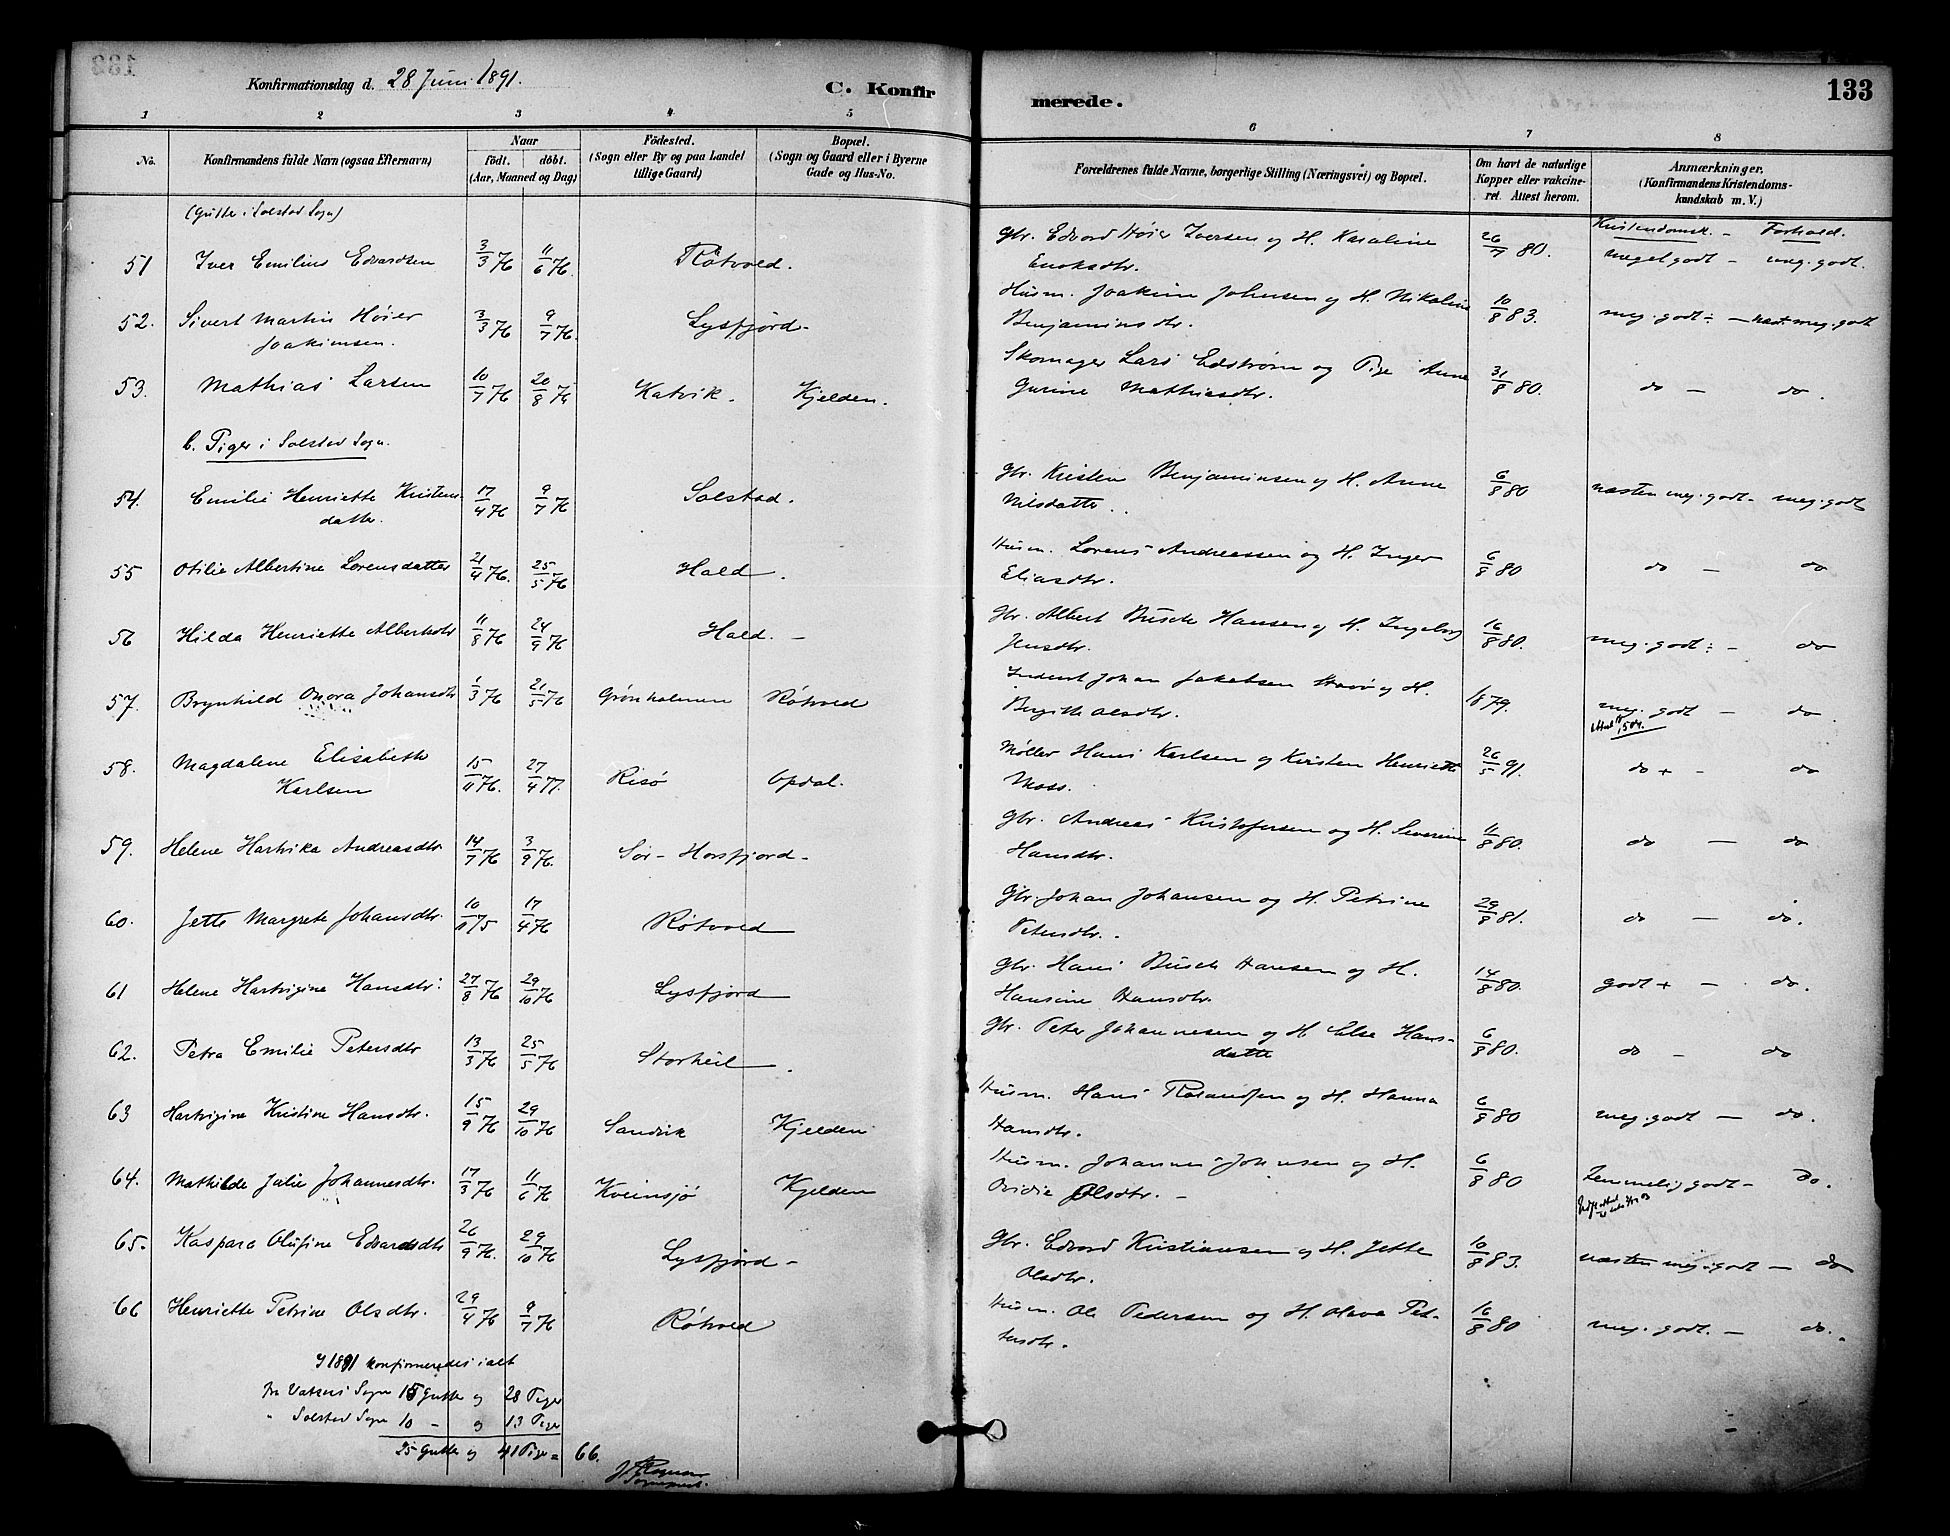 Konfirmationsdag d. 28 Juni 1891.
C. Konfirmerede.
133
1 2 3 4 5 6 7 8
No. Konfirmandens fulde Navn (ogsaa Efternavn) Naar født. døbt. (Aar, Maaned og Dag) Födested. (Sogn eller By og paa Landet tillige Gaard) Bopæl. (Sogn og Gaard eller i Byerne Gade og Hus-No. Forældrenes fulde Navne, borgerlige Stilling (Næringsvei) og Bopæl. Om havt de naturlige Kopper eller vakcineret. Attest herom. Anmærkninger. (Konfirmandens Kristendomskundskab m. V.)
(Gutter i Solstad Sogn) Kristendomsk. - Forhold.
51 Iver Emilius Edvardsen 3/3 76 11/6 76. Røtvold. Gbr. Edvord Høier Iversen og H. Karoline Enoksdtr. 26/7 80. meget godt - meg. godt.
52. Sivert Martin Høier Joakimsen. 3/3 76 9/7 76. Lysfjord - Husm. Joakim Johnsen og H. Nikoline Benjaminsdtr. 10/8 83. meg. godt ÷ - næst. meg. godt
53. Mathias Larsen 10/7 76 20/8 76 Katvik. Kjelden. Skomager Lars Edstrøm og Pige Anne Gurine Mathiasdtr. 31/8 80. do - do.
b. Piger i Solstad Sogn.
54. Emilie Henriette Kristensdatter. 17/4 76 9/7 76 Solstad. Gbr. Kristen Benjaminsen og H. Anne Nilsdatter. 6/8 80 næsten meg. godt - meg. godt
55 Otilie Albertine Lorensdatter 21/4 76. 25/5 76 Hald. Husm. Lorens Andreassen og H. Inger Eliasdtr. 6/8 80 do - do
56 Hilda Henriette Albertsdtr 11/8 76 24/9 76 Hald. - Gbr. Albert Busch Hansen og H. Ingeborg Jensdtr. 16/8 80. meg. godt ÷ - do
57. Brynhild Onora Johansdtr 1/3 76 21/5 76 Grønholmen Røtvold Johan Jakobsen og H. Birgith Olsdtr. 1879. meg. godt - do.
58. Magdalene Elisabeth Karlsen 15/11 76. 27/4 77. Risø Opdal. Møller Hans Karlsen og Kirsten Henriette Moss. 26/5 91. do + - do
59. Helene Hartvika Andreasdtr 14/7 76 3/9 76. Sør-Horsfjord - Gbr. Andreas Kristofersen og H. Severine Hansdtr. 11/8 80. do - do
60. Jette Margrete Johansdtr. 10/11 75 17/4 76 Røtvold Gbr. Johan Johansen og H. Petrine Petersdtr. 29/8 81. do - do.
61 Helene Hartvigine Hansdtr. 27/8 76 29/10 76 Lysfjord Gbr. Hans Busch Hansen og H. Hansine Hansdtr. 14/8 80. godt + - do.
62. Petra Emilie Petersdtr 13/3 76 25/5 76 Storheil. Gbr. Peter Johannesen og H. Else Hansdatter 6/8 80. do - do
63 Hartvigine Kristine Hansdtr. 15/9 76 29/10 76 Sandvik Kjelden Husm. Hans og H. Hanna Hansdtr. 6/8 80 meg. godt - do.
64. Mathilde Julie Johannesdtr. 17/3 76 11/6 76 Kveinsjø Kjelden Husm. Johannes Johnsen og H. Ovidie Olsdtr. - 6/8 80 Temmelig godt - do.
65. Kaspara Olufine Edvardsdtr 26/9 76. 29/10 76 Lysfjord - Gbr. Edvord Kristiansen og H. Jette Olsdtr. 10/8 83. næsten meg. godt - do
66 Henriette Petrine Olsdtr. 29/4 76 9/7 76 Røtvold Husm. Ole Pedersen og H. Olava Petersdtr. 16/8 80 meg. godt. - do.
I 1891 konfirmeredes i alt
fra Vatsens Sogn 15 Gutter og 28 Piger
" Solstad Sogn 10 - og 13 Piger
25 Gutter og 41 Piger = 66.
Sogneprest.